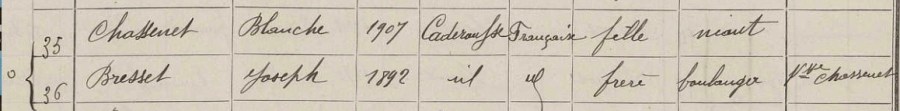 35 Chassenet Blanche 1907 Caderousse Française fille néant
36 Bresset Joseph 1892 id id frère boulanger Vve Chassenet